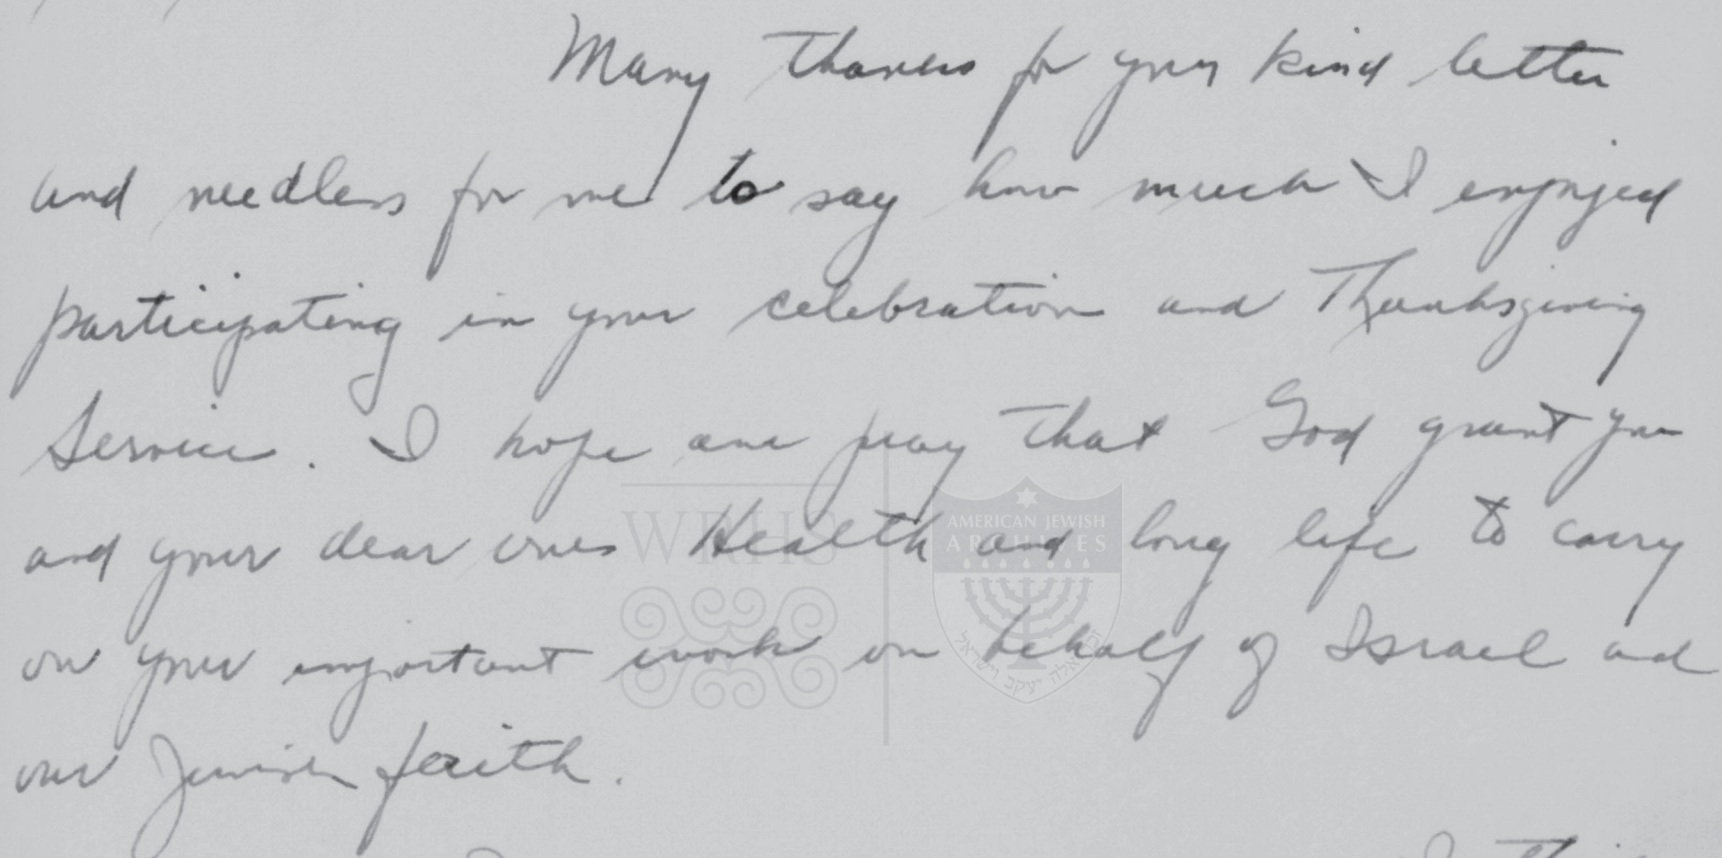 Many thanks for your kind letter
and needless for me to say how much I enjoyed
participating in your celebration and Thanksgiving
Service. I hope and pray that God grant you
and your dear ones Health and long life to carry
on your important work on behalf of Israel and
our Jewish faith.
WRHS
AMERICAN JEWISH
ARCHIVES